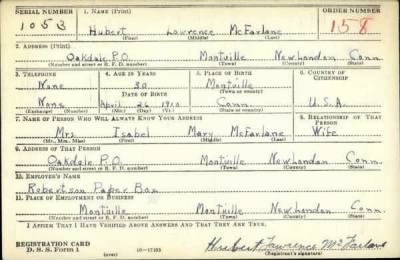 SERIAL NUMBER 1. NAME (Print) ORDER NUMBER
1053 Hubert Lawrence McFarlane 158
(First) (Middle) (Last)
2. ADDRESS (Print)
Oakdale P.O. Montville New London Conn.
(Number and street or R. F. D. number) (Town) (County) (State)
3. TELEPHONE 4. AGE IN YEARS 5. PLACE OF BIRTH 6. COUNTRY OF CITIZENSHIP
None 30 Montville
DATE OF BIRTH (Town or county)
None April 26 1910 Conn. U.S.A.
(Exchange) (Number) (Mo.) (Day) (Yr.) (State or country)
7. NAME OF PERSON WHO WILL ALWAYS KNOW YOUR ADDRESS 8. RELATIONSHIP OF THAT PERSON
Mrs Isabel Mary McFarlane Wife
(Mr., Mrs., Miss) (First) (Middle) (Last)
9. ADDRESS OF THAT PERSON
Oakdale P.O. Montville New London Conn.
(Number and street or R. F. D. number) (Town) (County) (State)
10. EMPLOYER'S NAME
Robertson Paper Box
11. PLACE OF EMPLOYMENT OR BUSINESS
Montville Montville New London Conn.
(Number and street or R. F. D. number) (Town) (County) (State)
I AFFIRM THAT I HAVE VERIFIED ABOVE ANSWERS AND THAT THEY ARE TRUE.
REGISTRATION CARD Hubert Lawrence McFarlane
D. S. S. Form 1 (over) (Registrant's signature)